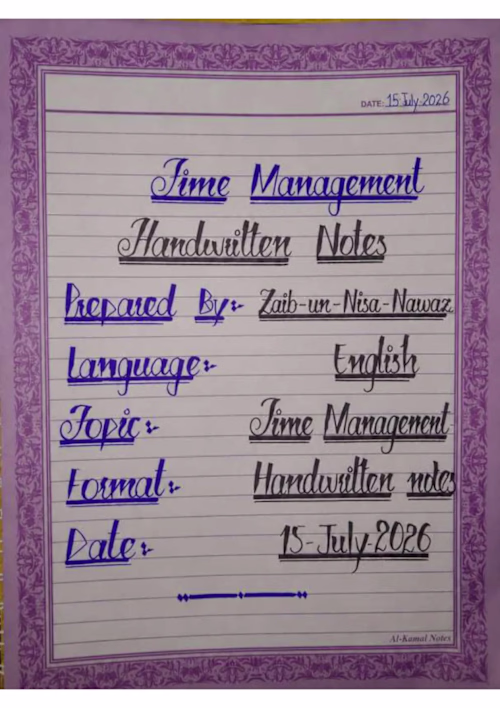 DATE: 15 July-2026
Time Management
Handwritten Notes
Prepared By:- Zaib-un-Nisa-Nawaz
Language:- English
Topic:- Time Management
Format:- Handwritten notes
Date:- 15-July-2026
Al-Kamal Notes